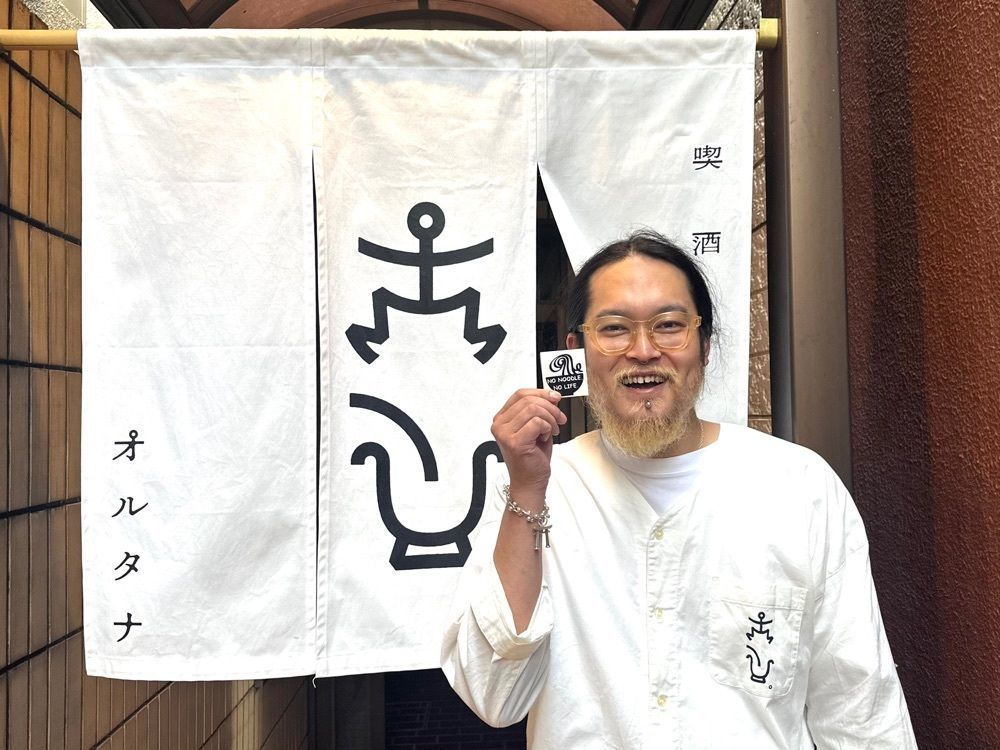 喫酒
オルタナ
NO NOODLE
NO LIFE